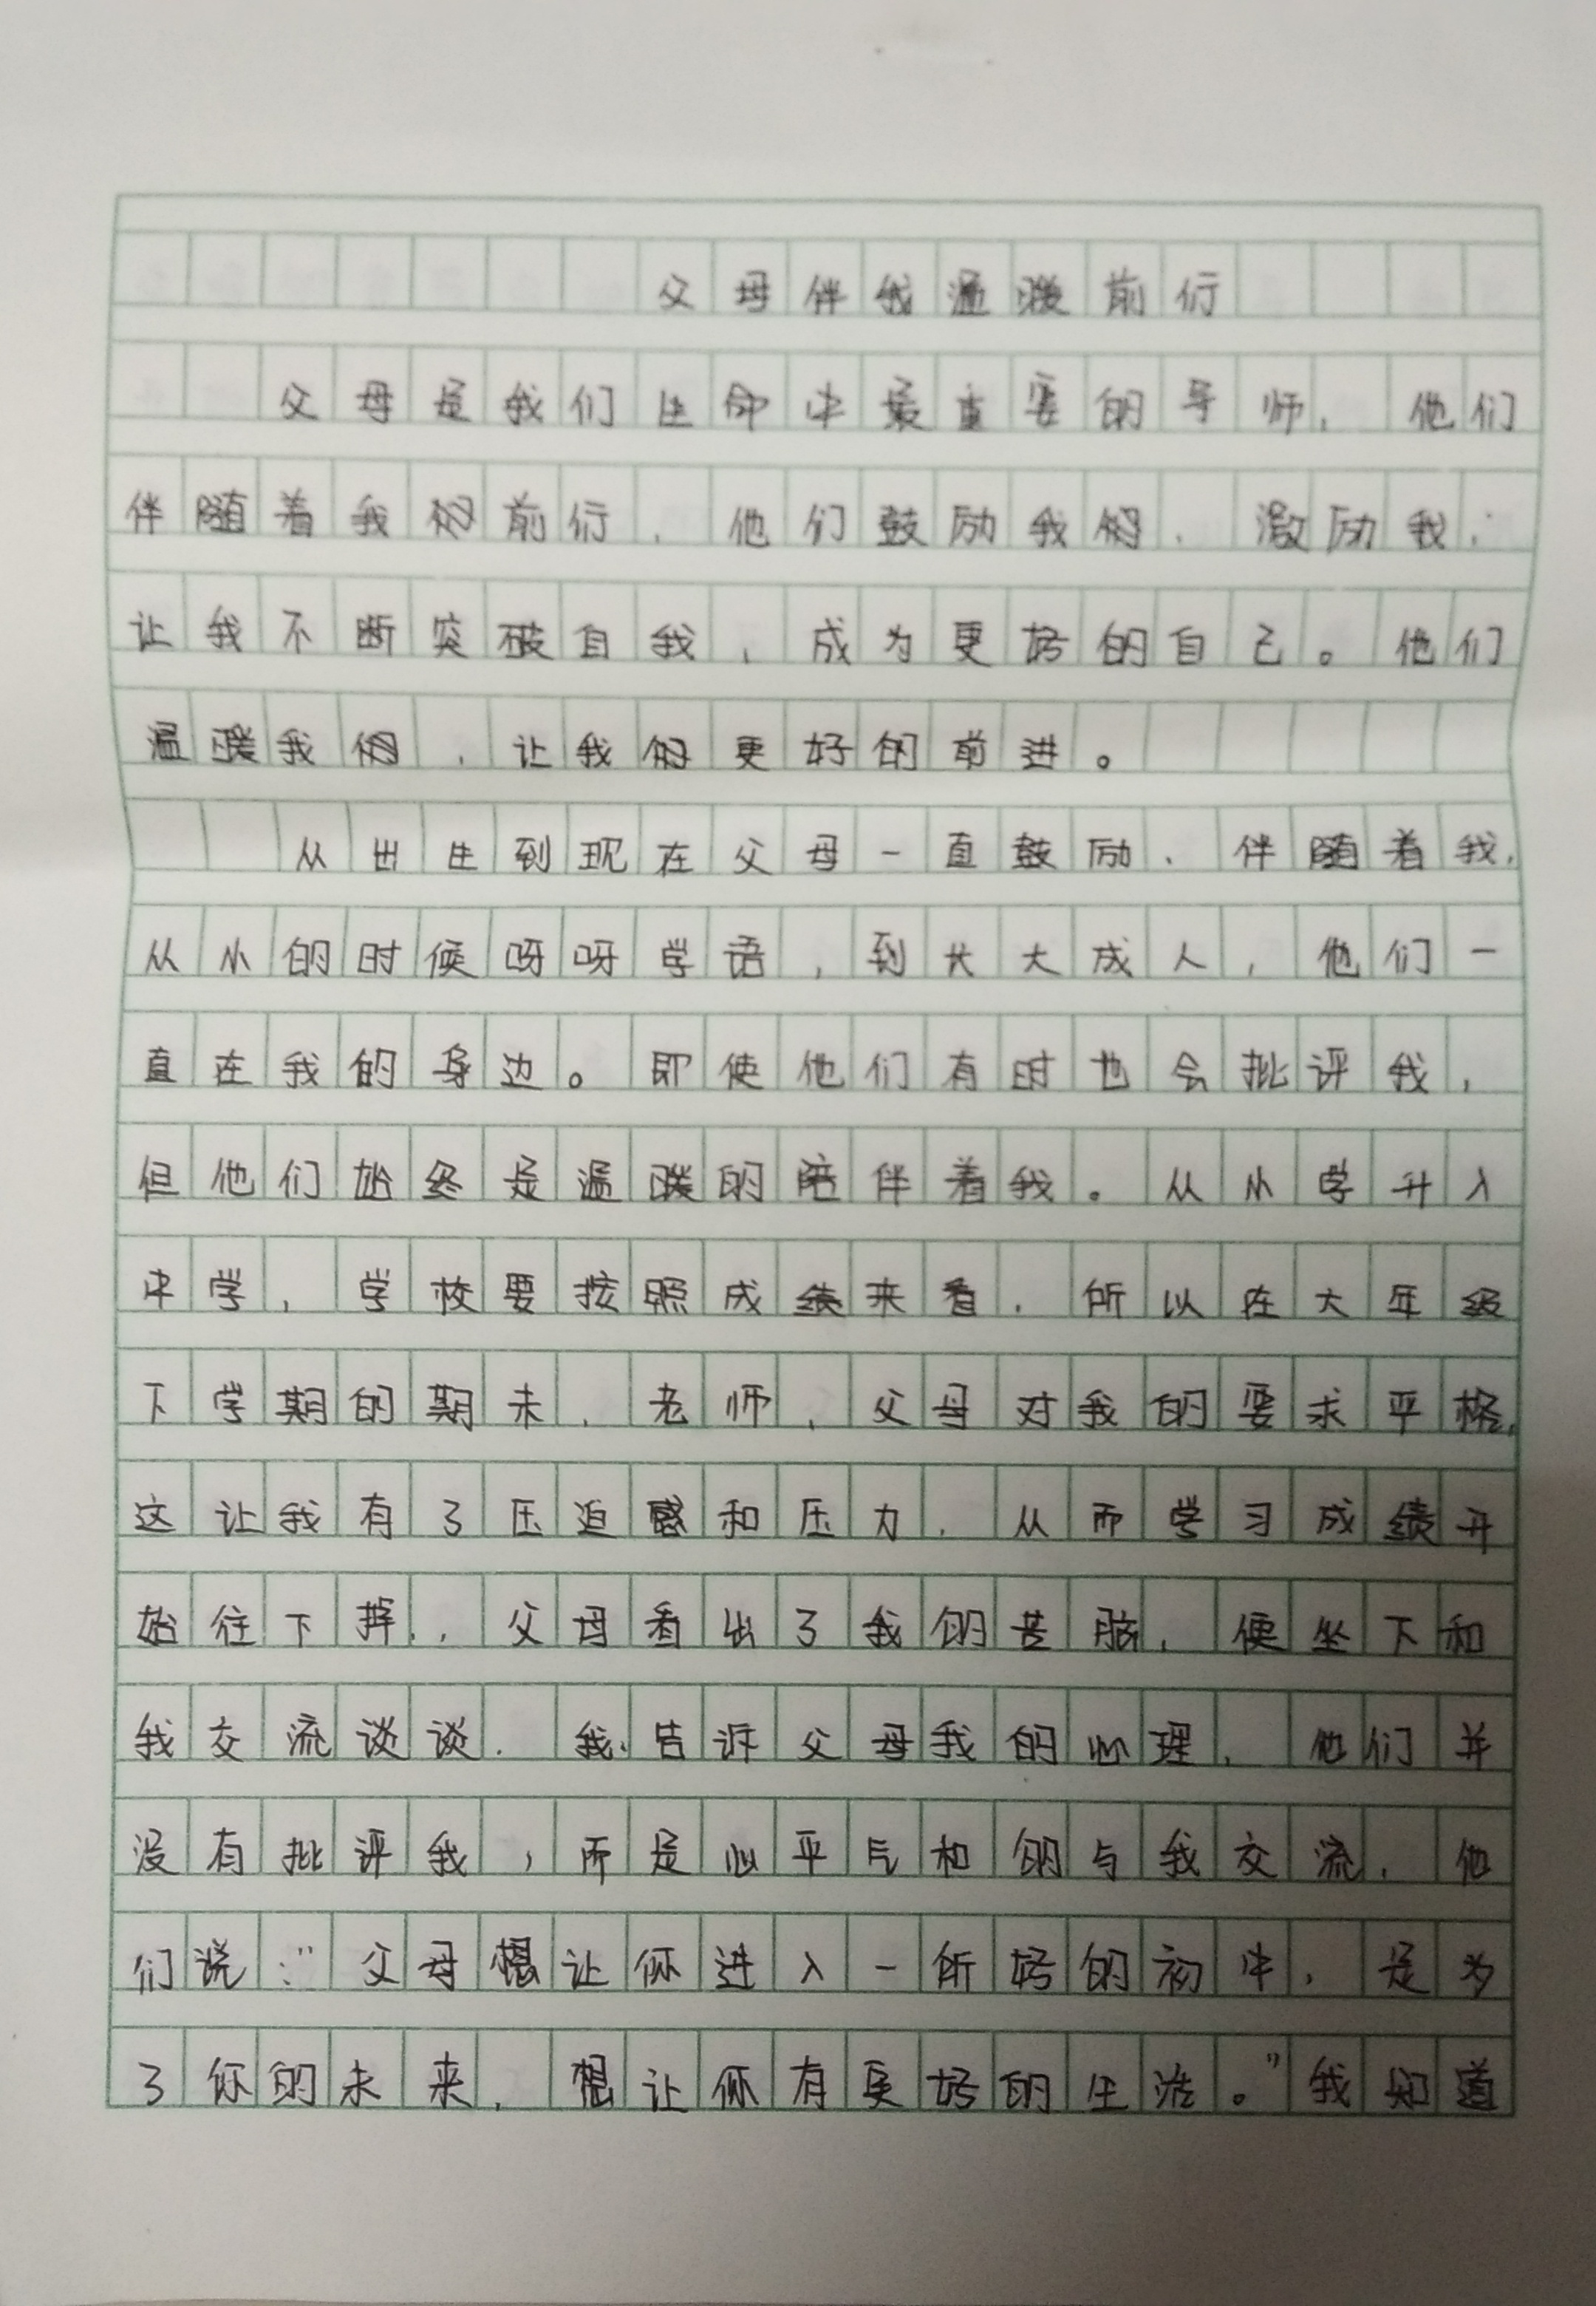 父母伴我温暖前行
父母是我们生命中最重要的导师，他们
伴随着我的前行，他们鼓励我的，激励我，
让我不断突破自我，成为更好的自己。他们
温暖我的，让我的更好的前进。
从出生到现在父母一直鼓励、伴随着我，
从小的时候呀呀学语，到长大成人，他们一
直在我的身边。即使他们有时也会批评我，
但他们始终是温暖的陪伴着我。从小学升入
中学，学校要按照成绩来看，所以在大年级
下学期的期末，老师，父母对我的要求平格，
这让我有了压迫感和压力，从而学习成绩开
始往下掉，父母看出了我的苦脑，便坐下和
我交流谈谈，我告诉父母我的心理，他们并
没有批评我，而是心平气和的与我交流，他
们说：“父母想让你进入一所好的初中，是为
了你的未来，想让你有更好的生活。”我知道